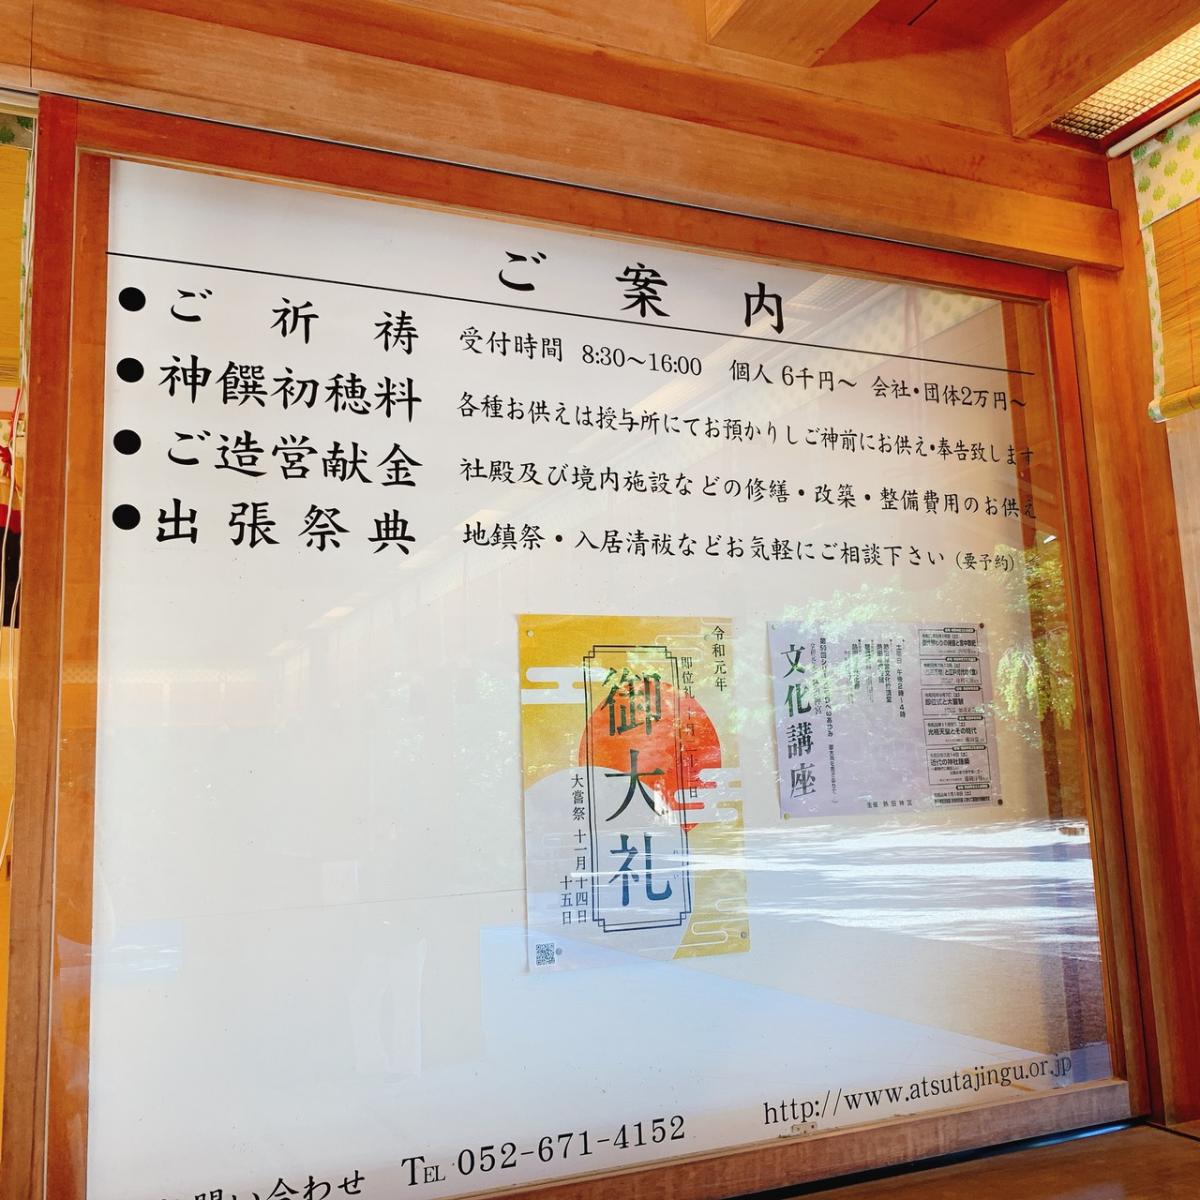 ご案内
●ご祈祷 受付時間 8:30〜16:00 個人6千円〜 会社・団体2万円〜
●神饌初穂料 各種お供えは授与所にてお預かりしご神前にお供え・奉告致します
●ご造営献金 社殿及び境内施設などの修繕・改築・整備費用のお供え
●出張祭典 地鎮祭・入居清祓などお気軽にご相談下さい（要予約）
令和元年
即位礼
御大礼
大嘗祭 十一月十四日
十五日
文化講座
土曜日 午後2時〜4時
即位式と大嘗祭
光格天皇とその時代
主催 熱田神宮
問い合わせ TEL 052-671-4152
http://www.atsutajingu.or.jp